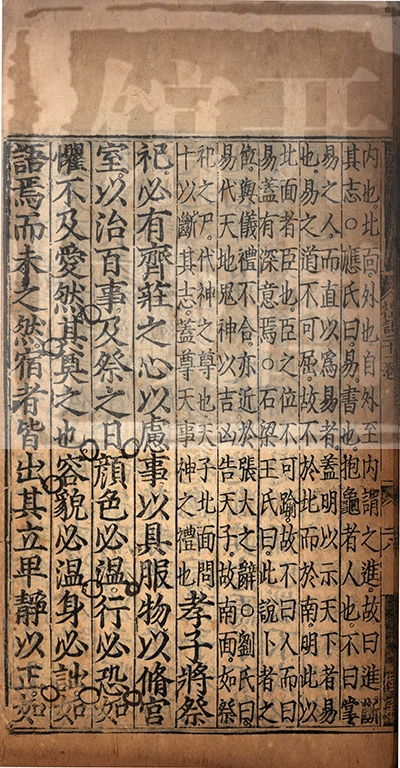 內也北面外也自外至內謂之進故曰進斷
其志○應氏曰易書也抱龜者人也不曰掌
易之人而直以爲易者蓋明以示天下者易
也易之道不可屈故不於此而於南明此以
北面者臣也臣之位不可踰故不曰人而曰
易蓋有深意焉○石梁王氏曰此說卜者之
位與儀禮不合亦近於張大之辭○劉氏曰
易代天地鬼神以吉凶告天子故南面如祭
祀之尸代神之尊也天子北面問
卜以斷其志蓋尊天事神之禮也
孝子將祭
祀必有齊莊之心以慮事以具服物以脩宮
室以治百事及祭之日顔色必溫行必恐如
懼不及愛然其奠之也容貌必溫身必詘如
語焉而未之然宿者皆出其立卑靜以正如